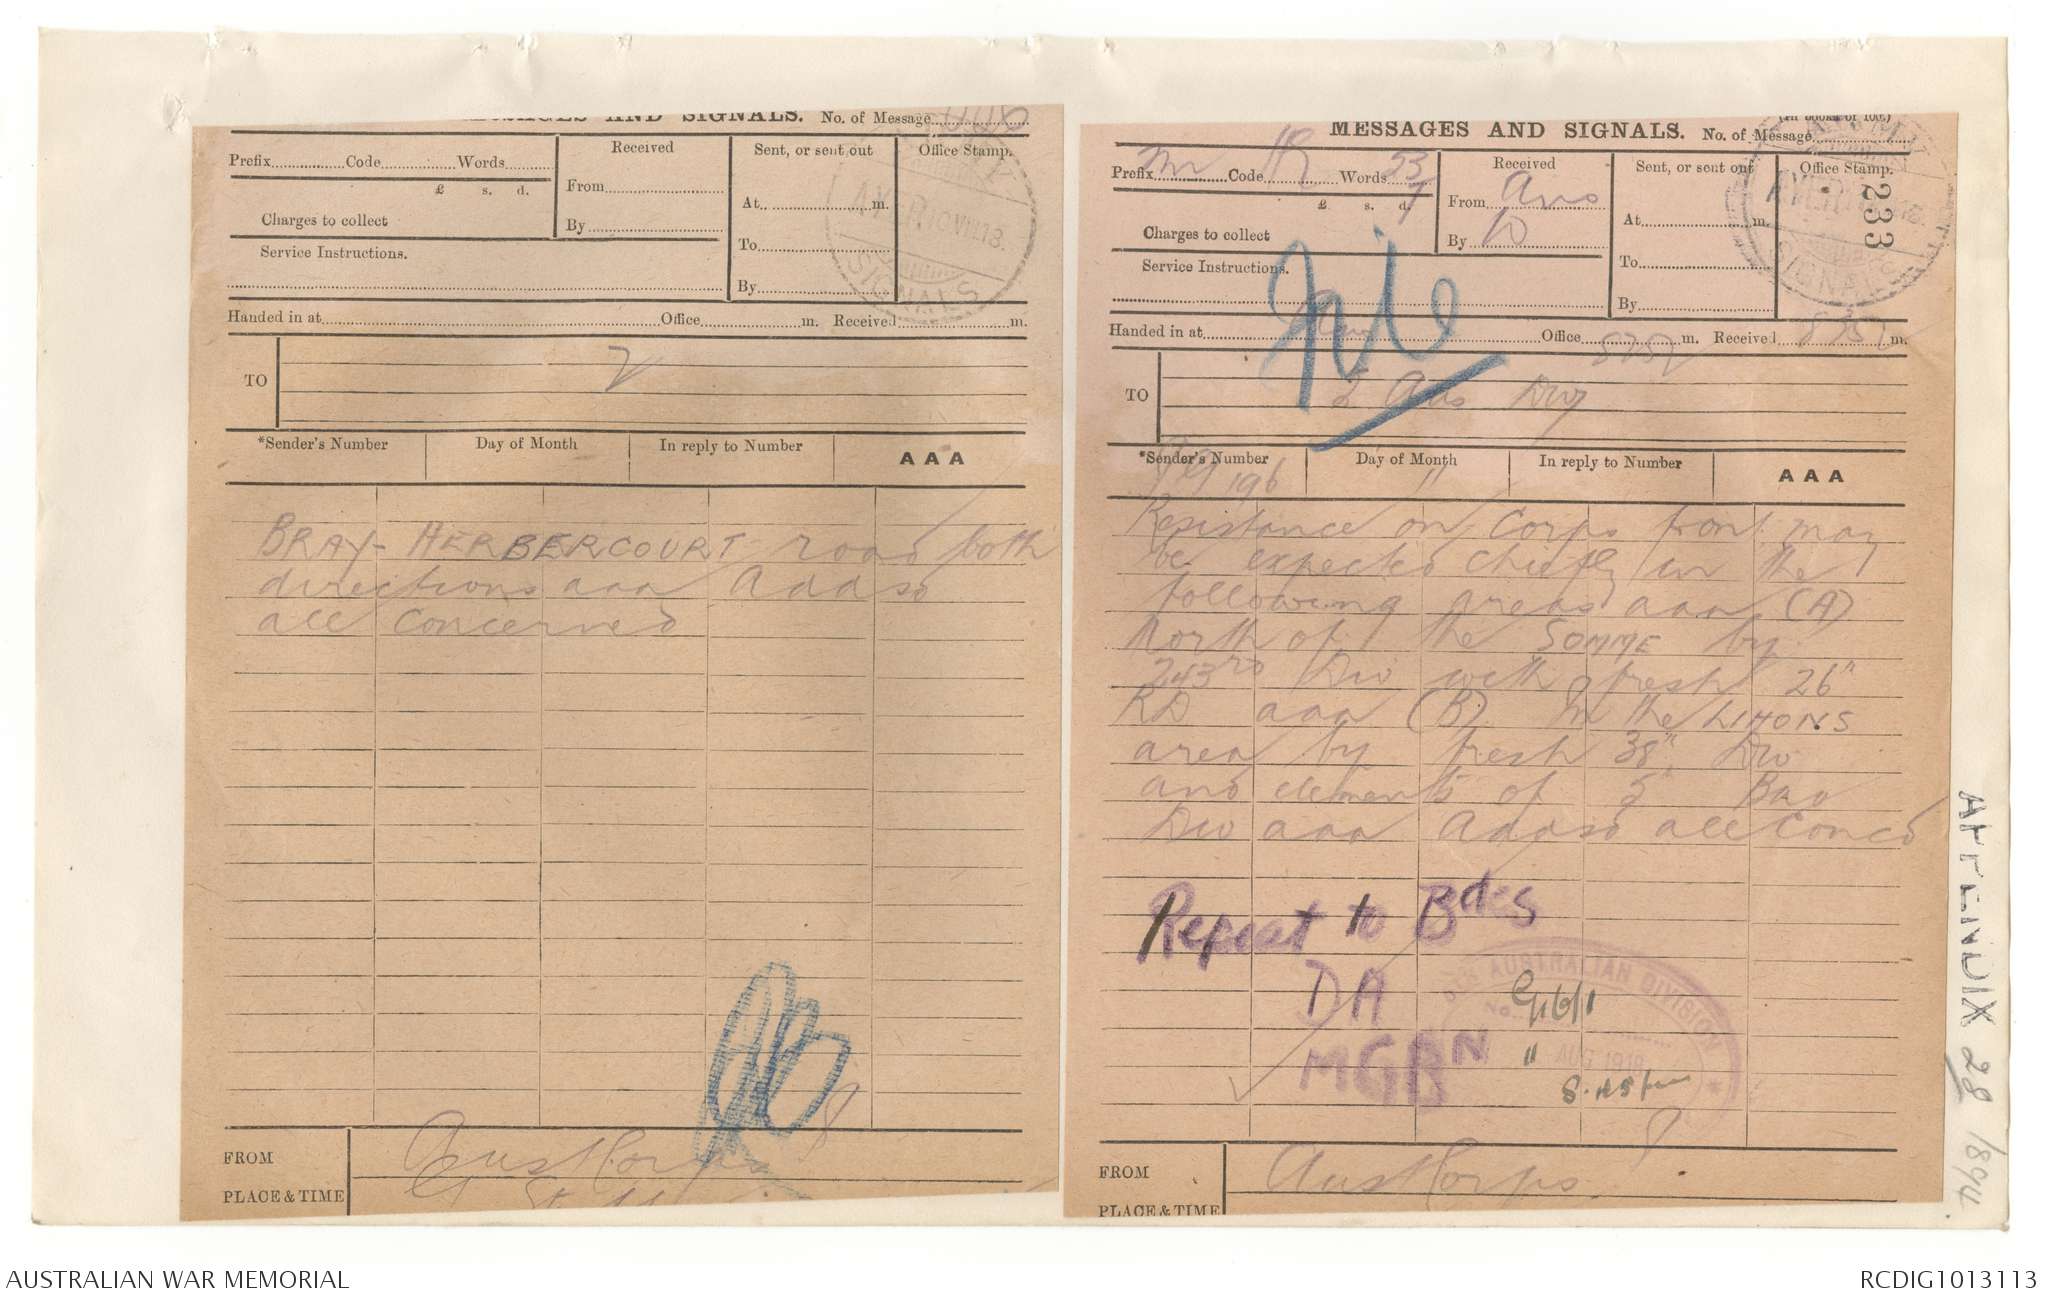 MESSAGES AND SIGNALS. No. of Message
Prefix Code Words
£ s. d.
Charges to collect
Service Instructions.
Received
From
By
Sent, or sent out
At m.
To
By
Office Stamp.
SIGNALS
Handed in at Office m. Received m.
TO
2
*Sender's Number Day of Month In reply to Number AAA
BRAY- HERBERCOURT road both
directions aaa Addsd
all concerned
FROM Aust Corps
PLACE & TIME
MESSAGES AND SIGNALS. No. of Message
Prefix m Code Words 53
£ s. d.
Charges to collect
Service Instructions.
Received
From Aus
By
Sent, or sent out
At m.
To
By
Office Stamp.
233
SIGNALS
Handed in at Office m. Received m.
TO 2 Aus Div
*Sender's Number Day of Month In reply to Number AAA
196 11
Resistance on Corps front may
be expected chiefly in the
following areas aaa (A)
North of the SOMME by
243rd Div with fresh 26"
RD aaa (B) In the LIHONS
area by fresh 38" Div
and elements of 5" Bav
Div aaa Addsd all concd
Repeat to Bdes
DA
MGBN
AUSTRALIAN DIVISION
AUG 1918
"
FROM Aust Corps
PLACE & TIME
APPENDIX 28 1894.
AUSTRALIAN WAR MEMORIAL
RCDIG1013113